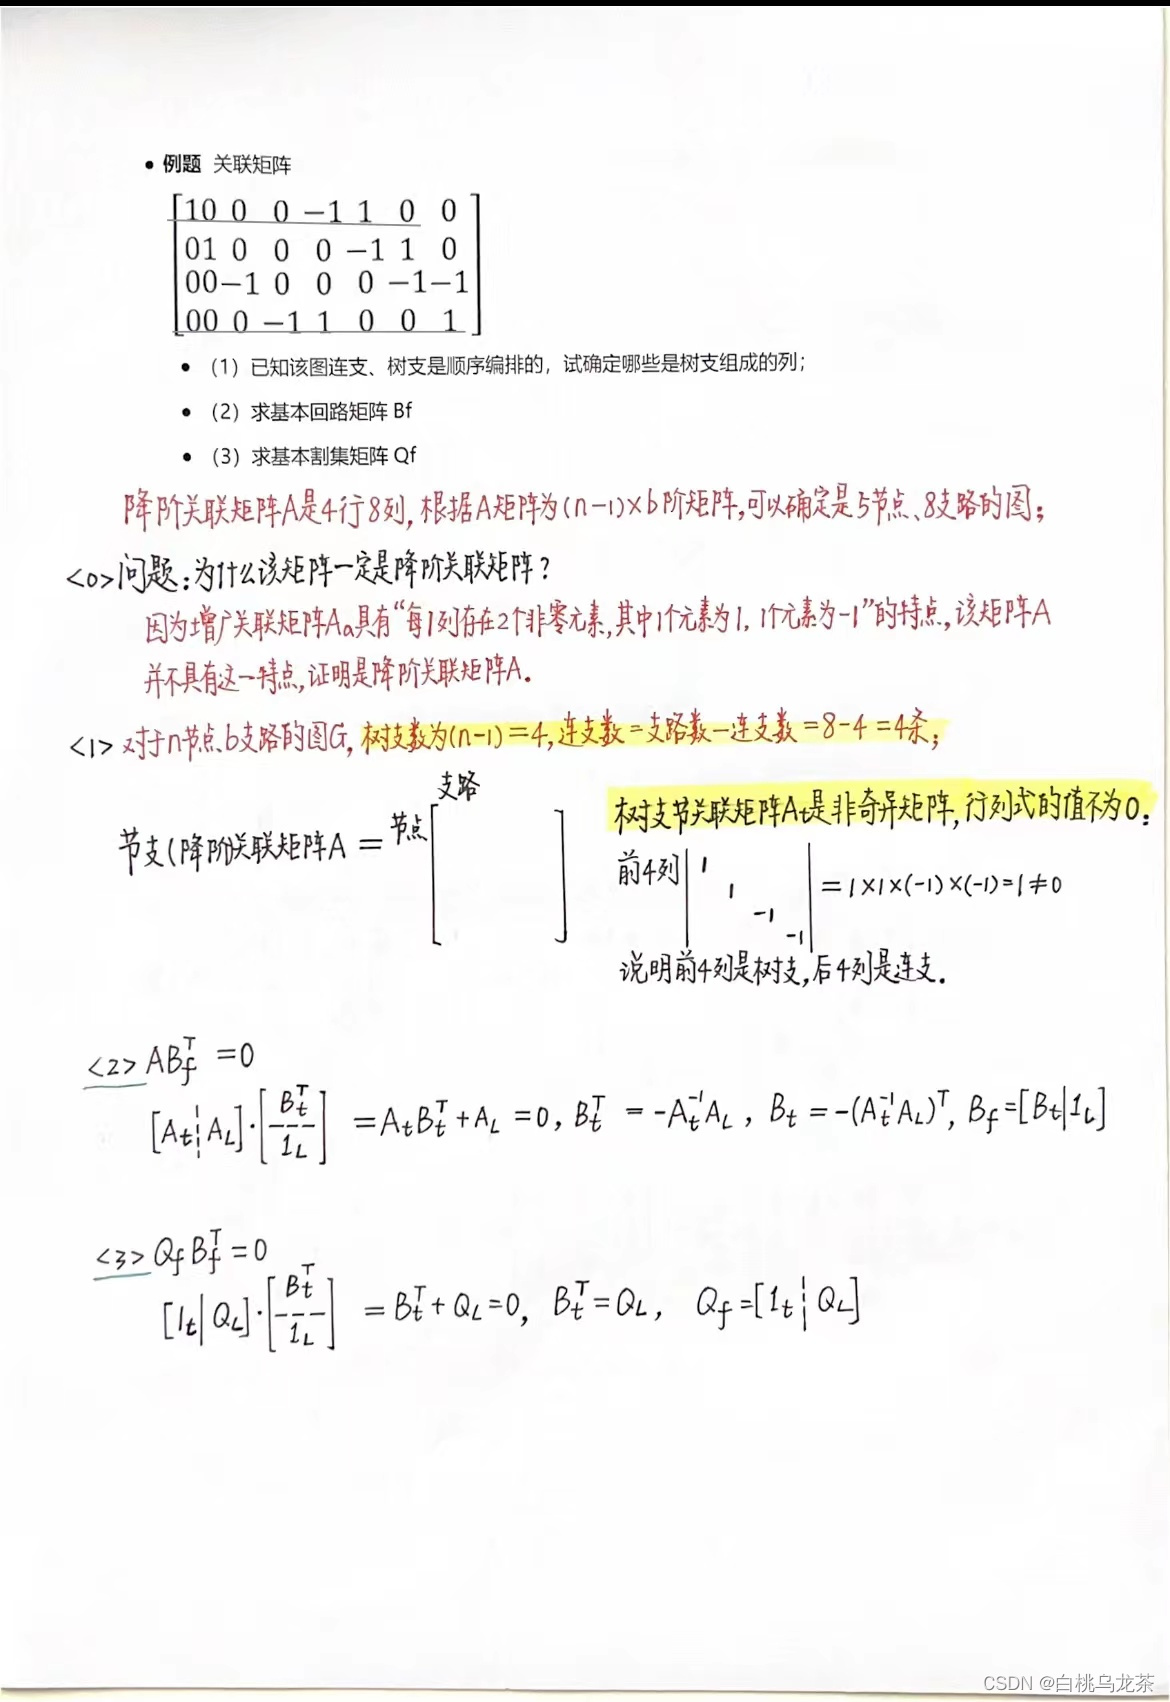 • 例题 关联矩阵
10 0 0 −1 1 0 0
01 0 0 0 −1 1 0
00−1 0 0 0 −1−1
00 0 −1 1 0 0 1
• （1）已知该图连支、树支是顺序编排的，试确定哪些是树支组成的列；
• （2）求基本回路矩阵 Bf
• （3）求基本割集矩阵 Qf
降阶关联矩阵A是4行8列, 根据A矩阵为(n-1)×b阶矩阵,可以确定是5节点、8支路的图；
<0>问题：为什么该矩阵一定是降阶关联矩阵？
因为增广关联矩阵Aa具有“每1列存在2个非零元素,其中1个元素为1, 1个元素为-1”的特点,该矩阵A
并不具有这一特点,证明是降阶关联矩阵A.
<1> 对于n节点、b支路的图G, 树支数为(n-1)=4, 连支数=支路数-连支数=8-4=4条；
支路
节支(降阶关联矩阵A = 节点[ ]
树支节关联矩阵At是非奇异矩阵,行列式的值不为0：
前4列 | 1
1
-1
-1 | =1×1×(-1)×(-1)=1≠0
说明前4列是树支,后4列是连支.
<2> ABf^T =0
[At¦AL]·[Bt^T / 1L] =AtBt^T+AL =0, Bt^T = -At^-1AL, Bt = -(At^-1AL)^T, Bf=[Bt|1L]
<3> QfBf^T=0
[1t|QL]·[Bt^T / 1L] =Bt^T+QL=0, Bt^T=QL, Qf=[1t¦QL]
CSDN @白桃乌龙茶